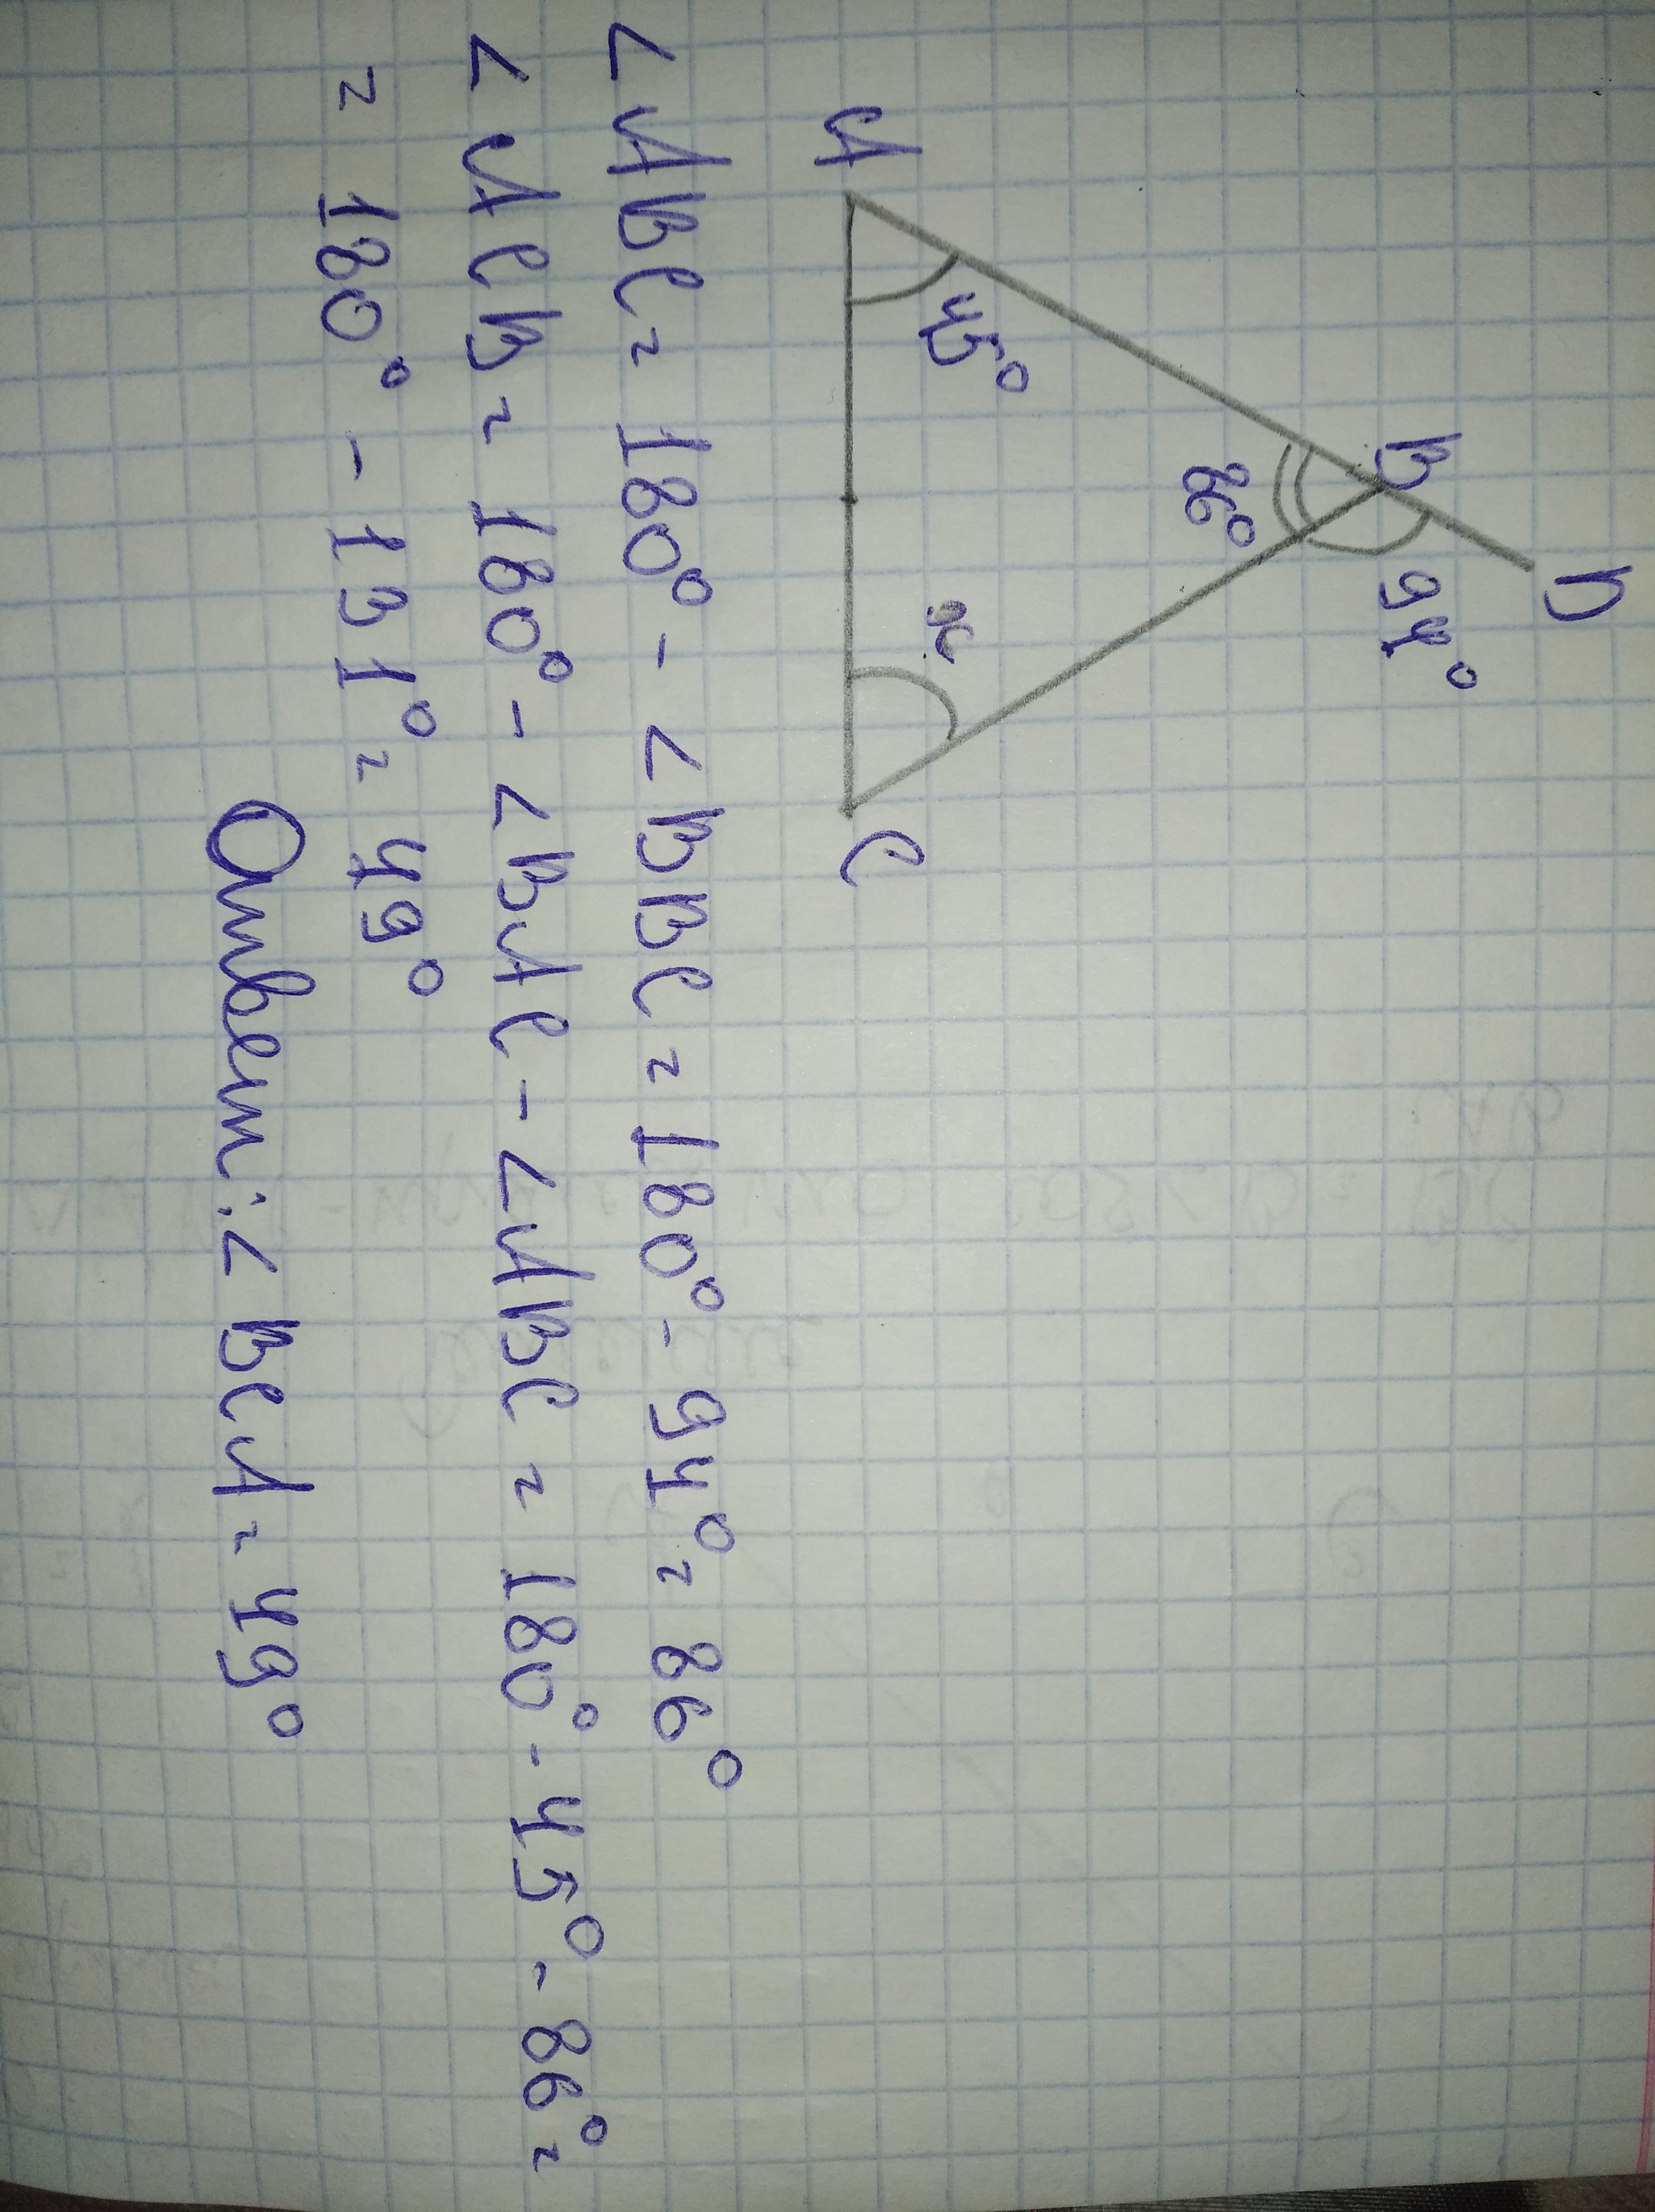 D
B 94°
86°
45° x
A C
<ABC = 180° - <BBC = 180° - 94° = 86°
<ACB = 180° - <BAC - <ABC = 180° - 45° - 86° =
= 180° - 131° = 49°
Ответ: <BCA = 49°